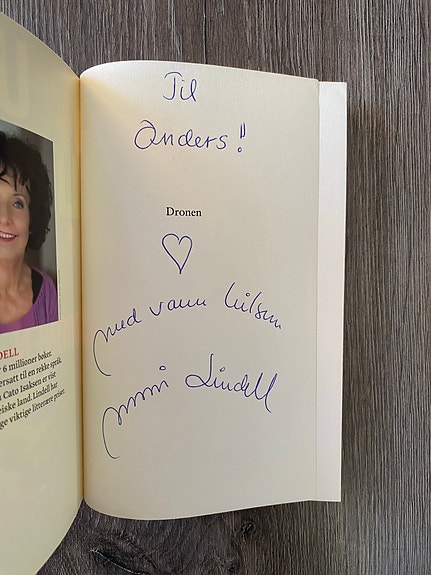 DELL
6 millioner bøker.
ersatt til en rekke språk.
Cato Isaksen er vist
eiske land. Lindell har
ge viktige litterære priser.
Til
Anders!
Dronen
med varm hilsen
Unni Lindell